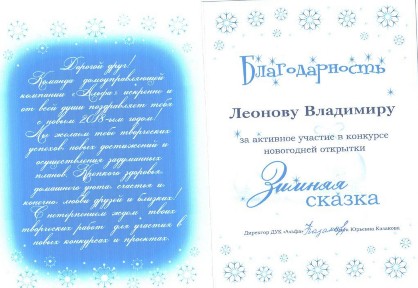 Дорогой друг!
Команда домоуправляющей
компании «Альфа» искренне и
от всей души поздравляет тебя
с новым 2018-ым годом!
Мы желаем тебе творческих
успехов, новых достижений и
осуществления задуманных
планов. Крепкого здоровья,
домашнего уюта, счастья и
конечно любви друзей и близких!
С нетерпением ждем твоих
творческих работ для участия в
новых конкурсах и проектах.
Благодарность
Леонову Владимиру
за активное участие в конкурсе
новогодней открытки
Зимняя
сказка
Директор ДУК «Альфа» Юрьевна Казакова